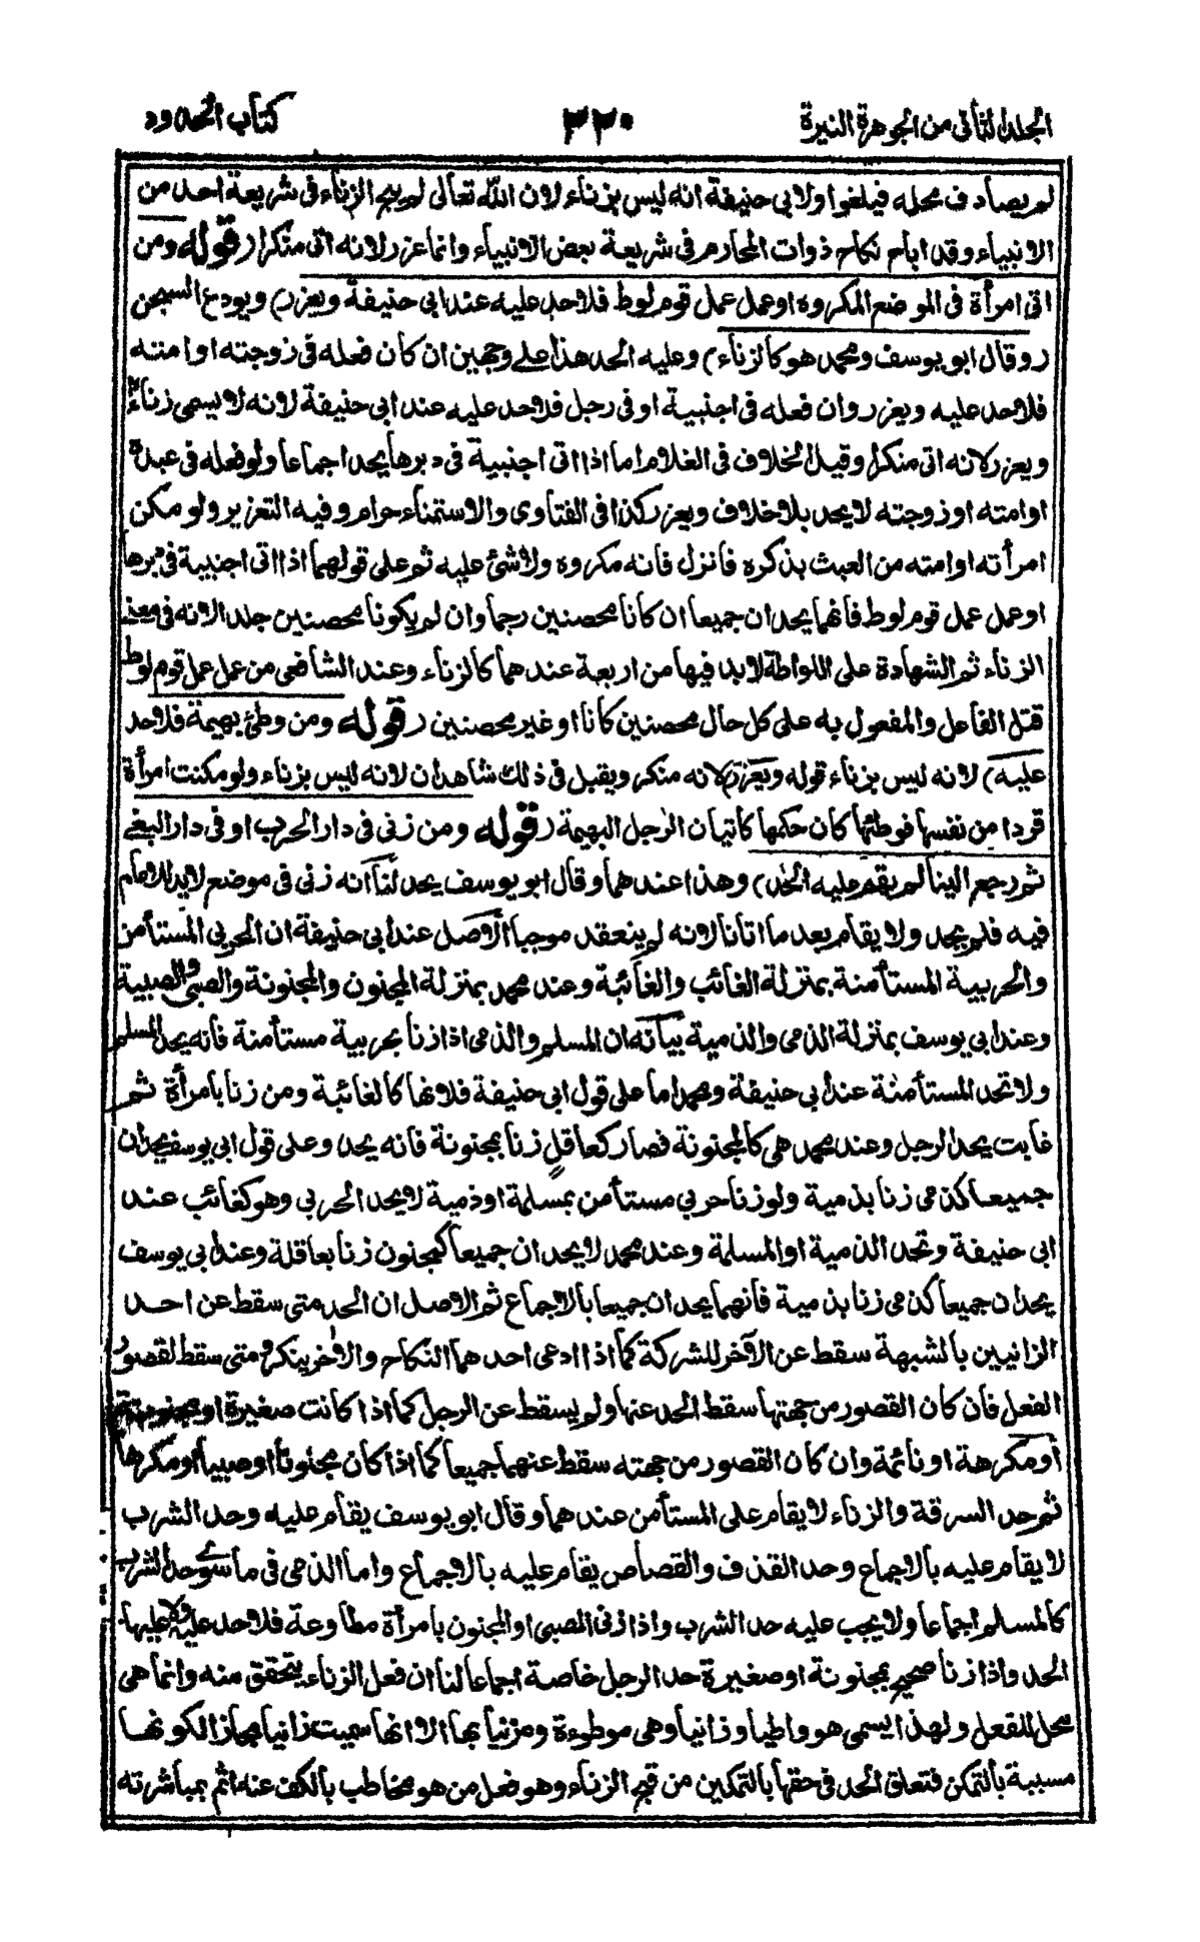 المجلد الثانى من الجوهرة النيرة ٣٢٠ كتاب الحدود
لم يصادف محله فيلغو ولابى حنيفة انه ليس بزناء لان الله تعالى لم يبح الزناء فى شريعة احد من
الانبياء وقد اباح نكاح ذوات المحارم فى شريعة بعض الانبياء وانما عزر لانه اتى منكرا ( قوله ومن
اتى امرأة فى الموضع المكروه او عمل عمل قوم لوط فلا حد عليه عند ابى حنيفة ويعزر ) ويودع السجن
( وقال ابو يوسف ومحمد هو كالزناء ) وعليه الحد هذا على وجهين ان كان فعله فى زوجته او امته
فلا حد عليه ويعزر وان فعله فى اجنبية او فى رجل فلا حد عليه عند ابى حنيفة لانه لا يسمى زناء
ويعزر لانه اتى منكرا وقيل الخلاف فى الغلام اما اذا اتى اجنبية فى دبرها يحد اجماعا ولو فعله فى عبده
او امته او زوجته لا يحد بلا خلاف ويعزر كذا فى الفتاوى والاستمناء حرام وفيه التعزير ولو مكن
امرأته او امته من العبث بذكره فانزل فانه مكروه ولا شئ عليه ثم على قولهما اذا اتى اجنبية فى دبرها
او عمل عمل قوم لوط فانهما يحدان جميعا ان كانا محصنين رجما وان لم يكونا محصنين جلدا لانه فى معنى
الزناء ثم الشهادة على اللواطة لا بد فيها من اربعة عندهما كالزناء وعند الشافعى من عمل عمل قوم لوط
قتل الفاعل والمفعول به على كل حال محصنين كانا او غير محصنين ( قوله ومن وطئ بهيمة فلا حد
عليه ) لانه ليس بزناء قوله ويعزر لانه منكر ويقبل فى ذلك شاهدان لانه ليس بزناء ولو مكنت امرأة
قردا من نفسها فوطئها كان حكمها كاتيان الرجل البهيمة ( قوله ومن زنى فى دار الحرب او فى دار البغى
ثم رجع الينا لم يقم عليه الحد ) وهذا عندهما وقال ابو يوسف يحد لنا انه زنى فى موضع لا يد للامام
فيه فلم يحد ولا يقام بعد ما اتانا لانه لم ينعقد موجبا الاصل عند ابى حنيفة ان الحربى المستأمن
والحربية المستأمنة بمنزلة الغائب والغائبة وعند محمد بمنزلة المجنون والمجنونة والصبى والصبية
وعند ابى يوسف بمنزلة الذمى والذمية بيانه ان المسلم والذمى اذا زنا بحربية مستأمنة فانه يحد المسلم
ولا تحد المستأمنة عند ابى حنيفة ومحمد اما على قول ابى حنيفة فلانها كالغائبة ومن زنا بامرأة ثم
غابت يحد الرجل وعند محمد هى كالمجنونة فصار كعاقل زنا بمجنونة فانه يحد وعلى قول ابى يوسف يحدان
جميعا كذمى زنا بذمية ولو زنا حربى مستأمن بمسلمة او ذمية لا يحد الحربى وهو كغائب عند
ابى حنيفة وتحد الذمية او المسلمة وعند محمد لا يحدان جميعا كمجنون زنا بعاقلة وعند ابى يوسف
يحدان جميعا كذمى زنا بذمية فانهما يحدان جميعا بالاجماع ثم الاصل ان الحد متى سقط عن احد
الزانيين بالشبهة سقط عن الآخر للشركة كما اذا ادعى احدهما النكاح والاخر ينكر ومتى سقط لقصور
الفعل فان كان القصور من جهتها سقط الحد عنها ولم يسقط عن الرجل كما اذا كانت صغيرة او مجنونة
او مكرهة او نائمة وان كان القصور من جهته سقط عنهما جميعا كما اذا كان مجنونا او صبيا او مكرها
ثم حد السرقة والزناء لا يقام على المستأمن عندهما وقال ابو يوسف يقام عليه وحد الشرب
لا يقام عليه بالاجماع وحد القذف والقصاص يقام عليه بالاجماع واما الذمى فى ما سوى حد الشرب
كالمسلم اجماعا ولا يجب عليه حد الشرب واذا زنى الصبى او المجنون بامرأة مطاوعة فلا حد عليه ولا عليها
الحد واذا زنا صحيح بمجنونة او صغيرة حد الرجل خاصة اجماعا لنا ان فعل الزناء يتحقق منه وانما هى
محل للفعل ولهذا يسمى هو واطيا وزانيا وهى موطوءة ومزنيا بها الا انها سميت زانيا مجازا لكونها
مسببة بالتمكن فتعلق الحد فى حقها بالتمكين من قبح الزناء وهو فعل من هو مخاطب بالكف عنه اثم بمباشرته